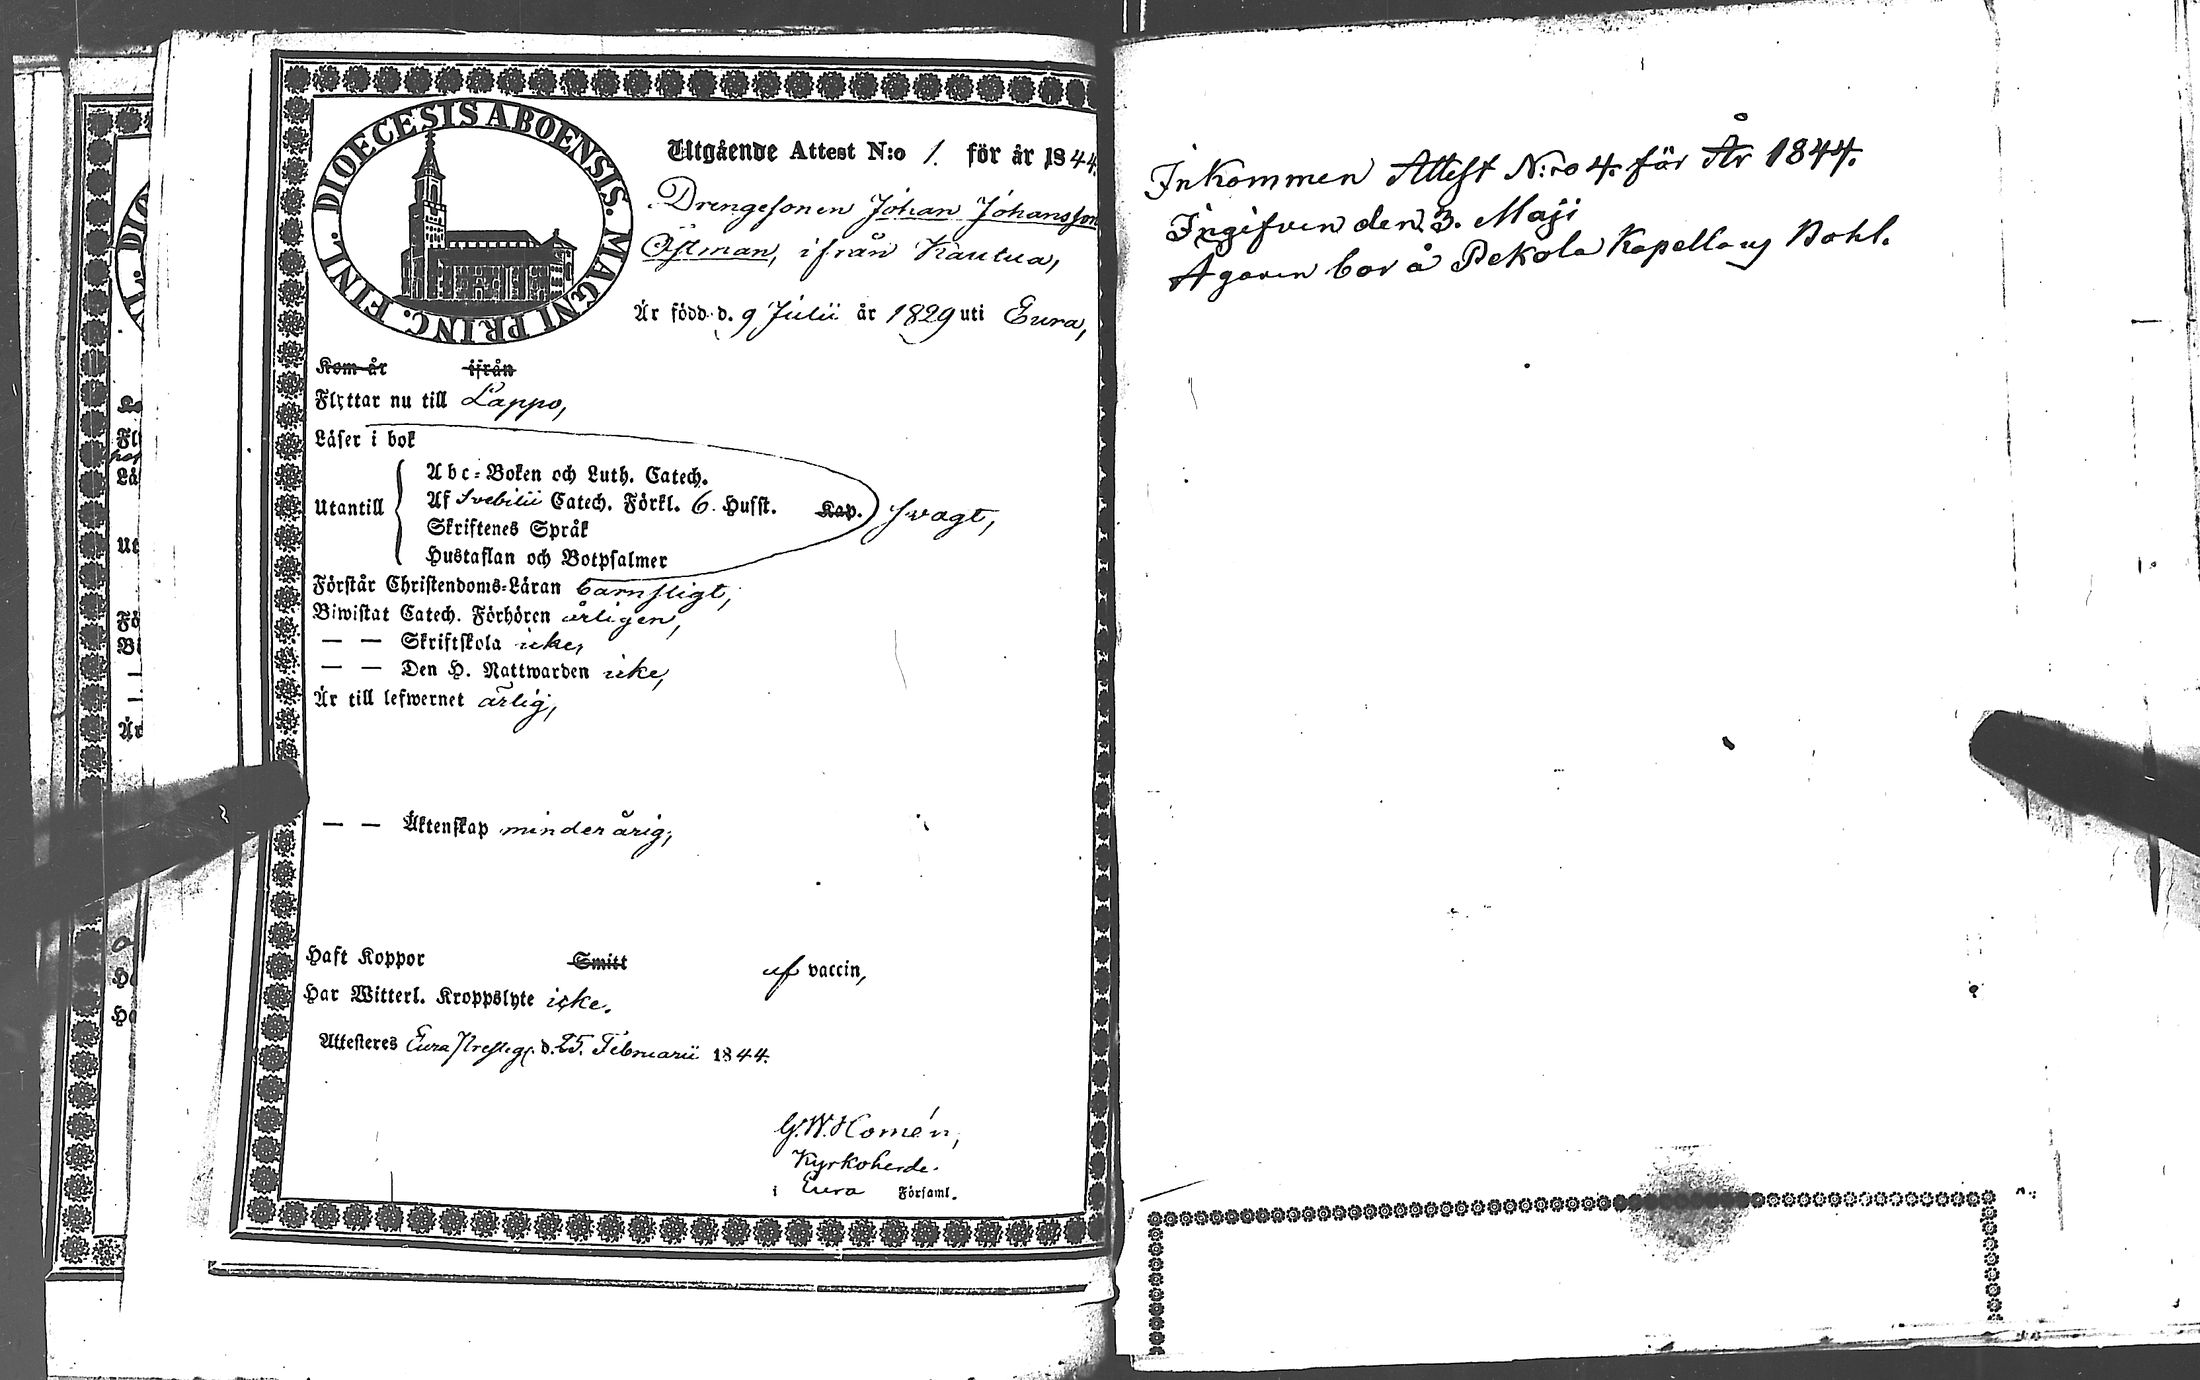 DIOECESIS ABOENSIS. MAGNI PRINC. FINL.
Utgående Attest N:o 1. för år 1844.
Drengesonen Johan Johansson
Östman, ifrån Kautua,
Är född d. 9 Julii år 1829 uti Eura,
Kom år ifrån
Flyttar nu till Lappo,
Läser i bok
Abc-Boken och Luth. Catech.
Utantill Af Svebilii Catech. Förkl. 6. Hufst. Kap. svagt,
Skriftenes Språk
Hustaflan och Botpsalmer
Förstår Christendoms-Läran barnsligt,
Biwistat Catech. Förhören årligen,
— — Skriftskola icke,
— — Den H. Nattwarden icke,
Är till lefwernet ärlig,
— — Äktenskap minderårig,
Haft Koppor Smitt af vaccin,
Har Witterl. Kroppslyte icke.
Attesteres Eura Presteg. d. 25. Februarii 1844.
G. W. Homén,
Kyrkoherde.
i Eura Församl.
Inkommen Attest N:ro 4. för År 1844.
Ingifven den 3. Maji
Ägaren bor å Pekola Kapellans Bohl.